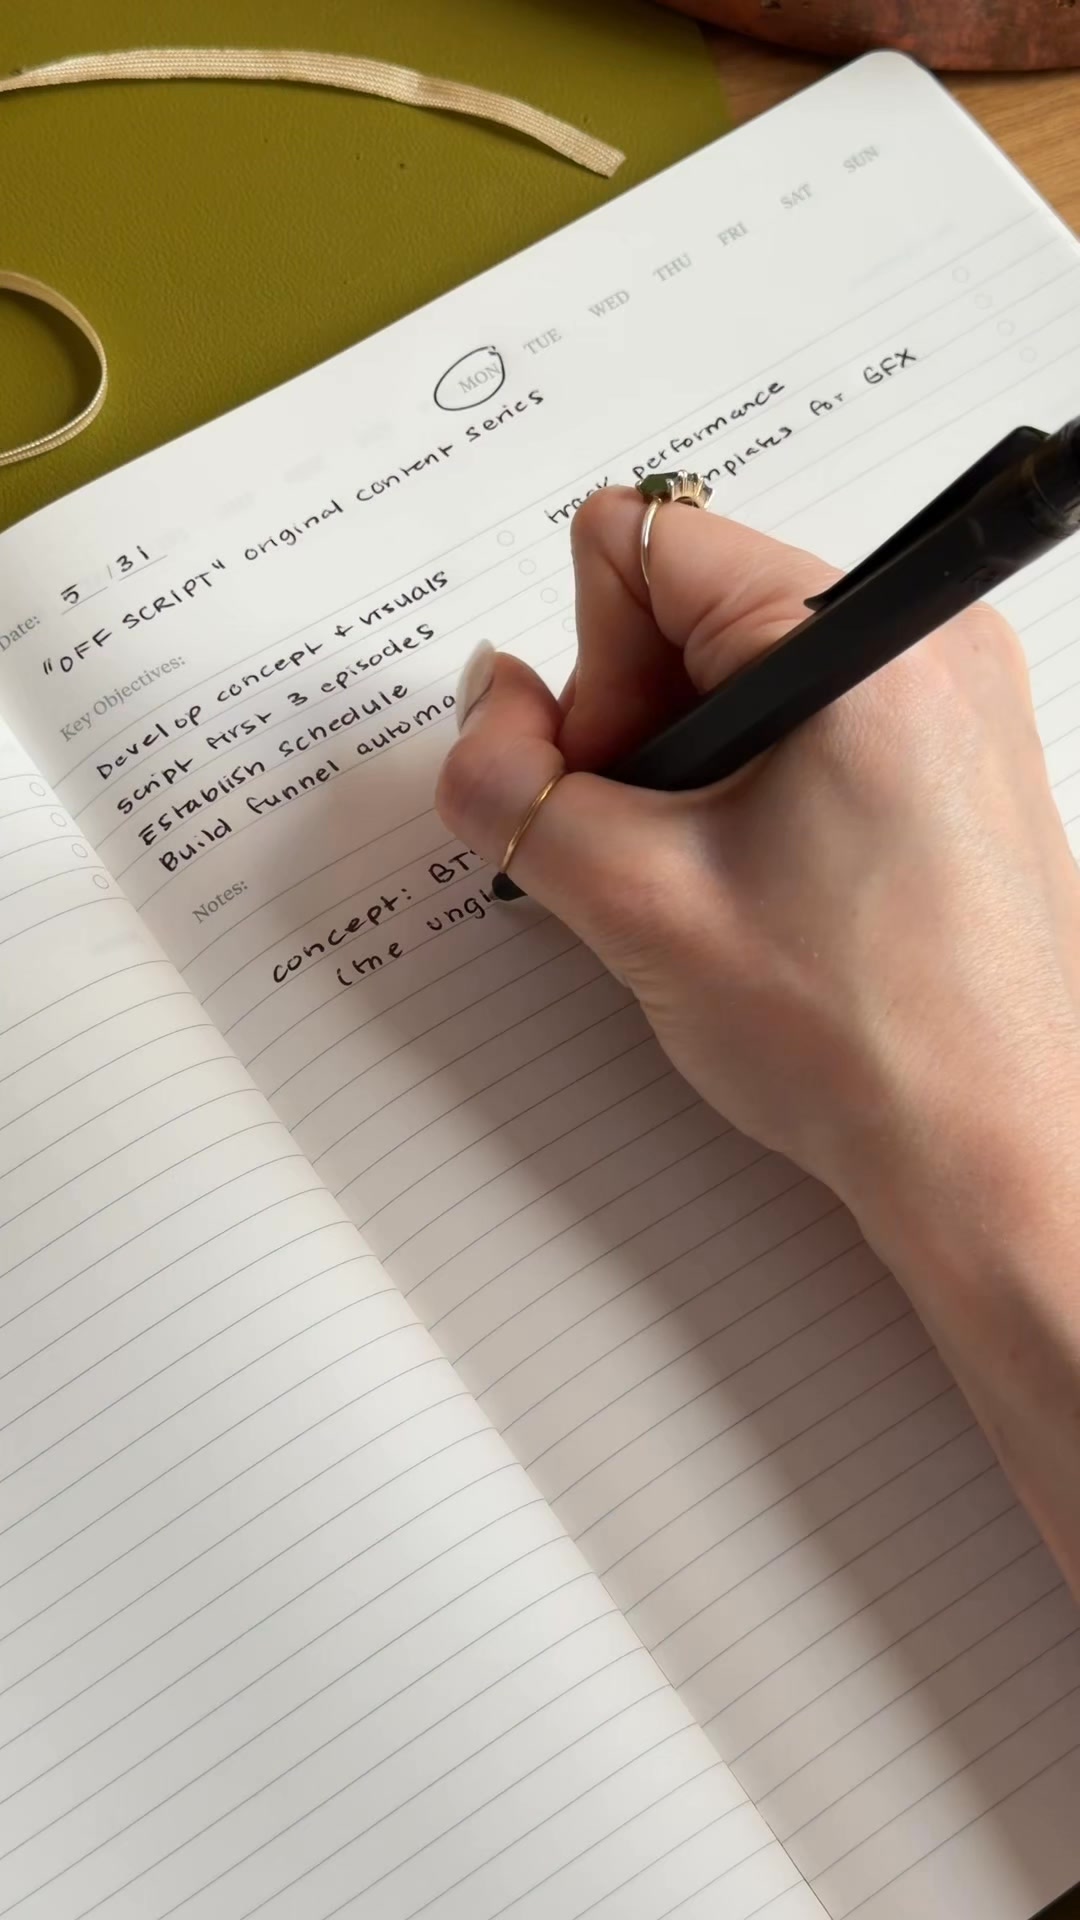 MON TUE WED THU FRI SAT SUN
Date: 5/31
"OFF SCRIPT" original content series
Key Objectives:
Develop concept + visuals
script first 3 episodes
Establish schedule
Build funnel
track performance
for GFX
Notes:
concept:
(the